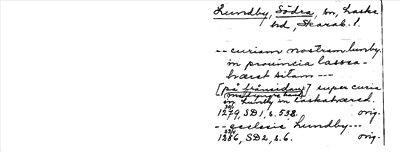 Lundby, Södra, sn, Laske
hd, Skarab. l.
-- curiam nostram lunby
in prouincia lassea-
bæret sitam ---
[på framsidan] super curia
in Lundby in Laskabæred.
1279, SD1, s. 558. orig.
-- ecclesie Lundby ---
1286, SD2, s. 6. orig.